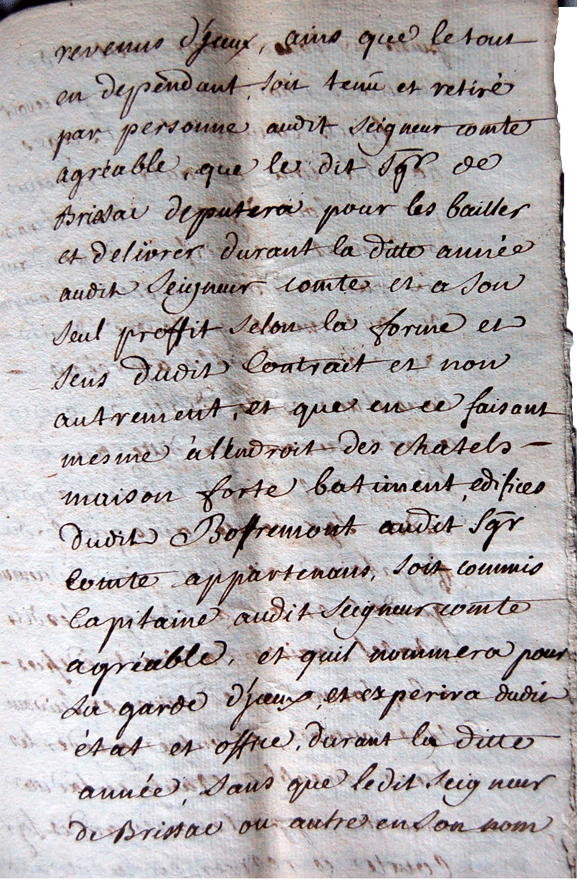 revenus d'jceux, ains que le tout
en dépendant, soit tenu et retiré
par personne audit seigneur comte
agréable, que le dit Sgr de
Brissac deputera pour les bailler
et delivrer durant la ditte année
audit seigneur comte et a son
seul proffit selon la forme et
sens dudit contrait et non
autrement, et que en ce faisant
mesme à l'endroit des chatels-
maison forte batiment, edifices
dudit Boffremont audit Sgr
Comte appartenans, soit commis
Capitaine audit seigneur comte
agréable, et quil nommera pour
La garde d'jceux, et experira dudit
état et office, durant la ditte
année, sans que ledit seigneur
de Brissac ou autre en son nom